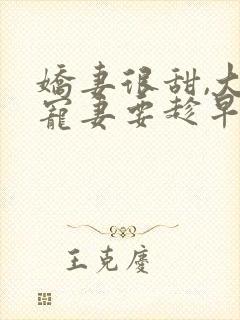 嬌妻很甜,大
寵妻要趁早
王克慶